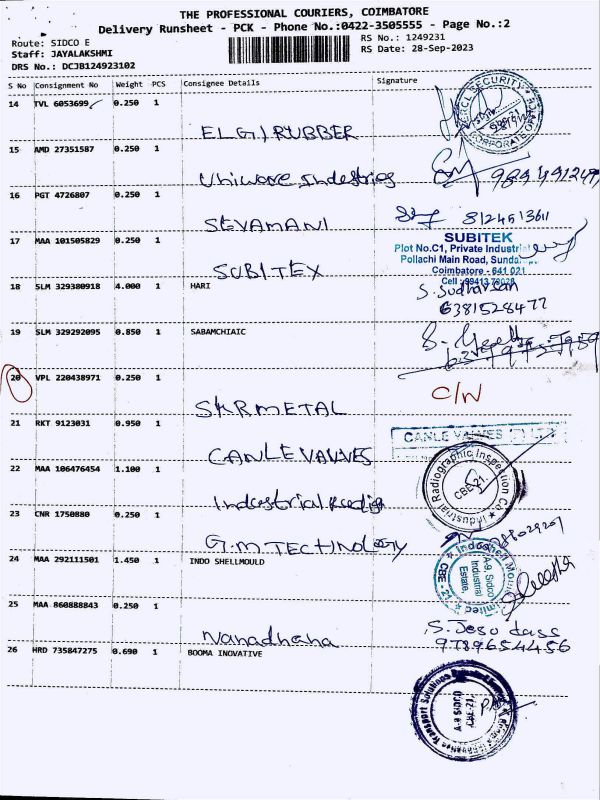 THE PROFESSIONAL COURIERS, COIMBATORE
Delivery Runsheet - PCK - Phone No.:0422-3505555 - Page No.:2
Route: SIDCO E
Staff: JAYALAKSHMI
DRS No.: DCJB124923102
RS No.: 1249231
RS Date: 28-Sep-2023
S No Consignment No Weight PCS Consignee Details Signature
14 TVL 6053699 0.250 1
ELGI RUBBER
15 AMD 27351587 0.250 1
Uniware Industries
16 PGT 4726807 0.250 1
SEVAMANI 8124513611
17 MAA 101505829 0.250 1
SUBITEX
SUBITEK
Plot No.C1, Private Industrial
Pollachi Main Road,
Coimbatore - 641 021
18 SLM 329380918 4.000 1 HARI
S. Sudharsan
6381528477
19 SLM 329292095 0.850 1 SABAMCHIAIC
20 VPL 220438971 0.250 1
SKRMETAL C/N
21 RKT 9123031 0.950 1
CANLE VALVES
CANLE VALVES
22 MAA 106476454 1.100 1
Industrial
Industrial Radiographic Inspection Co
CBE-21
23 CNR 1750880 0.250 1
G.M TECHNOLOGY
24 MAA 292111501 1.450 1 INDO SHELLMOULD
A-9, Sidco
Industrial
Estate,
CBE - 21
25 MAA 860888843 0.250 1
Nanadhana
S. Jesu dass
9789654456
26 HRD 735847275 0.690 1 BOOMA INOVATIVE
A-9 SIDCO
CBE-21